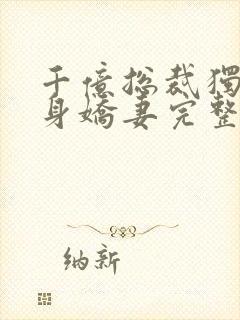 千億總裁獨
身嬌妻完整
纳新